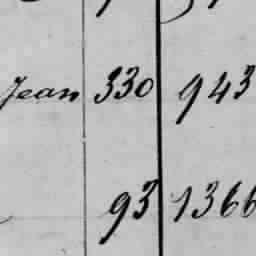 Jean 330 943
93 1366